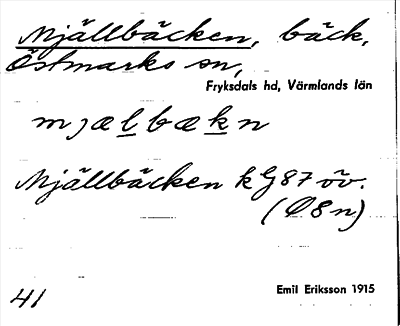 Mjällbäcken, bäck,
Östmarks sn,
Fryksdals hd, Värmlands län
mjælbækn
Mjällbäcken k G87 öv.
(Ö8n)
41
Emil Eriksson 1915